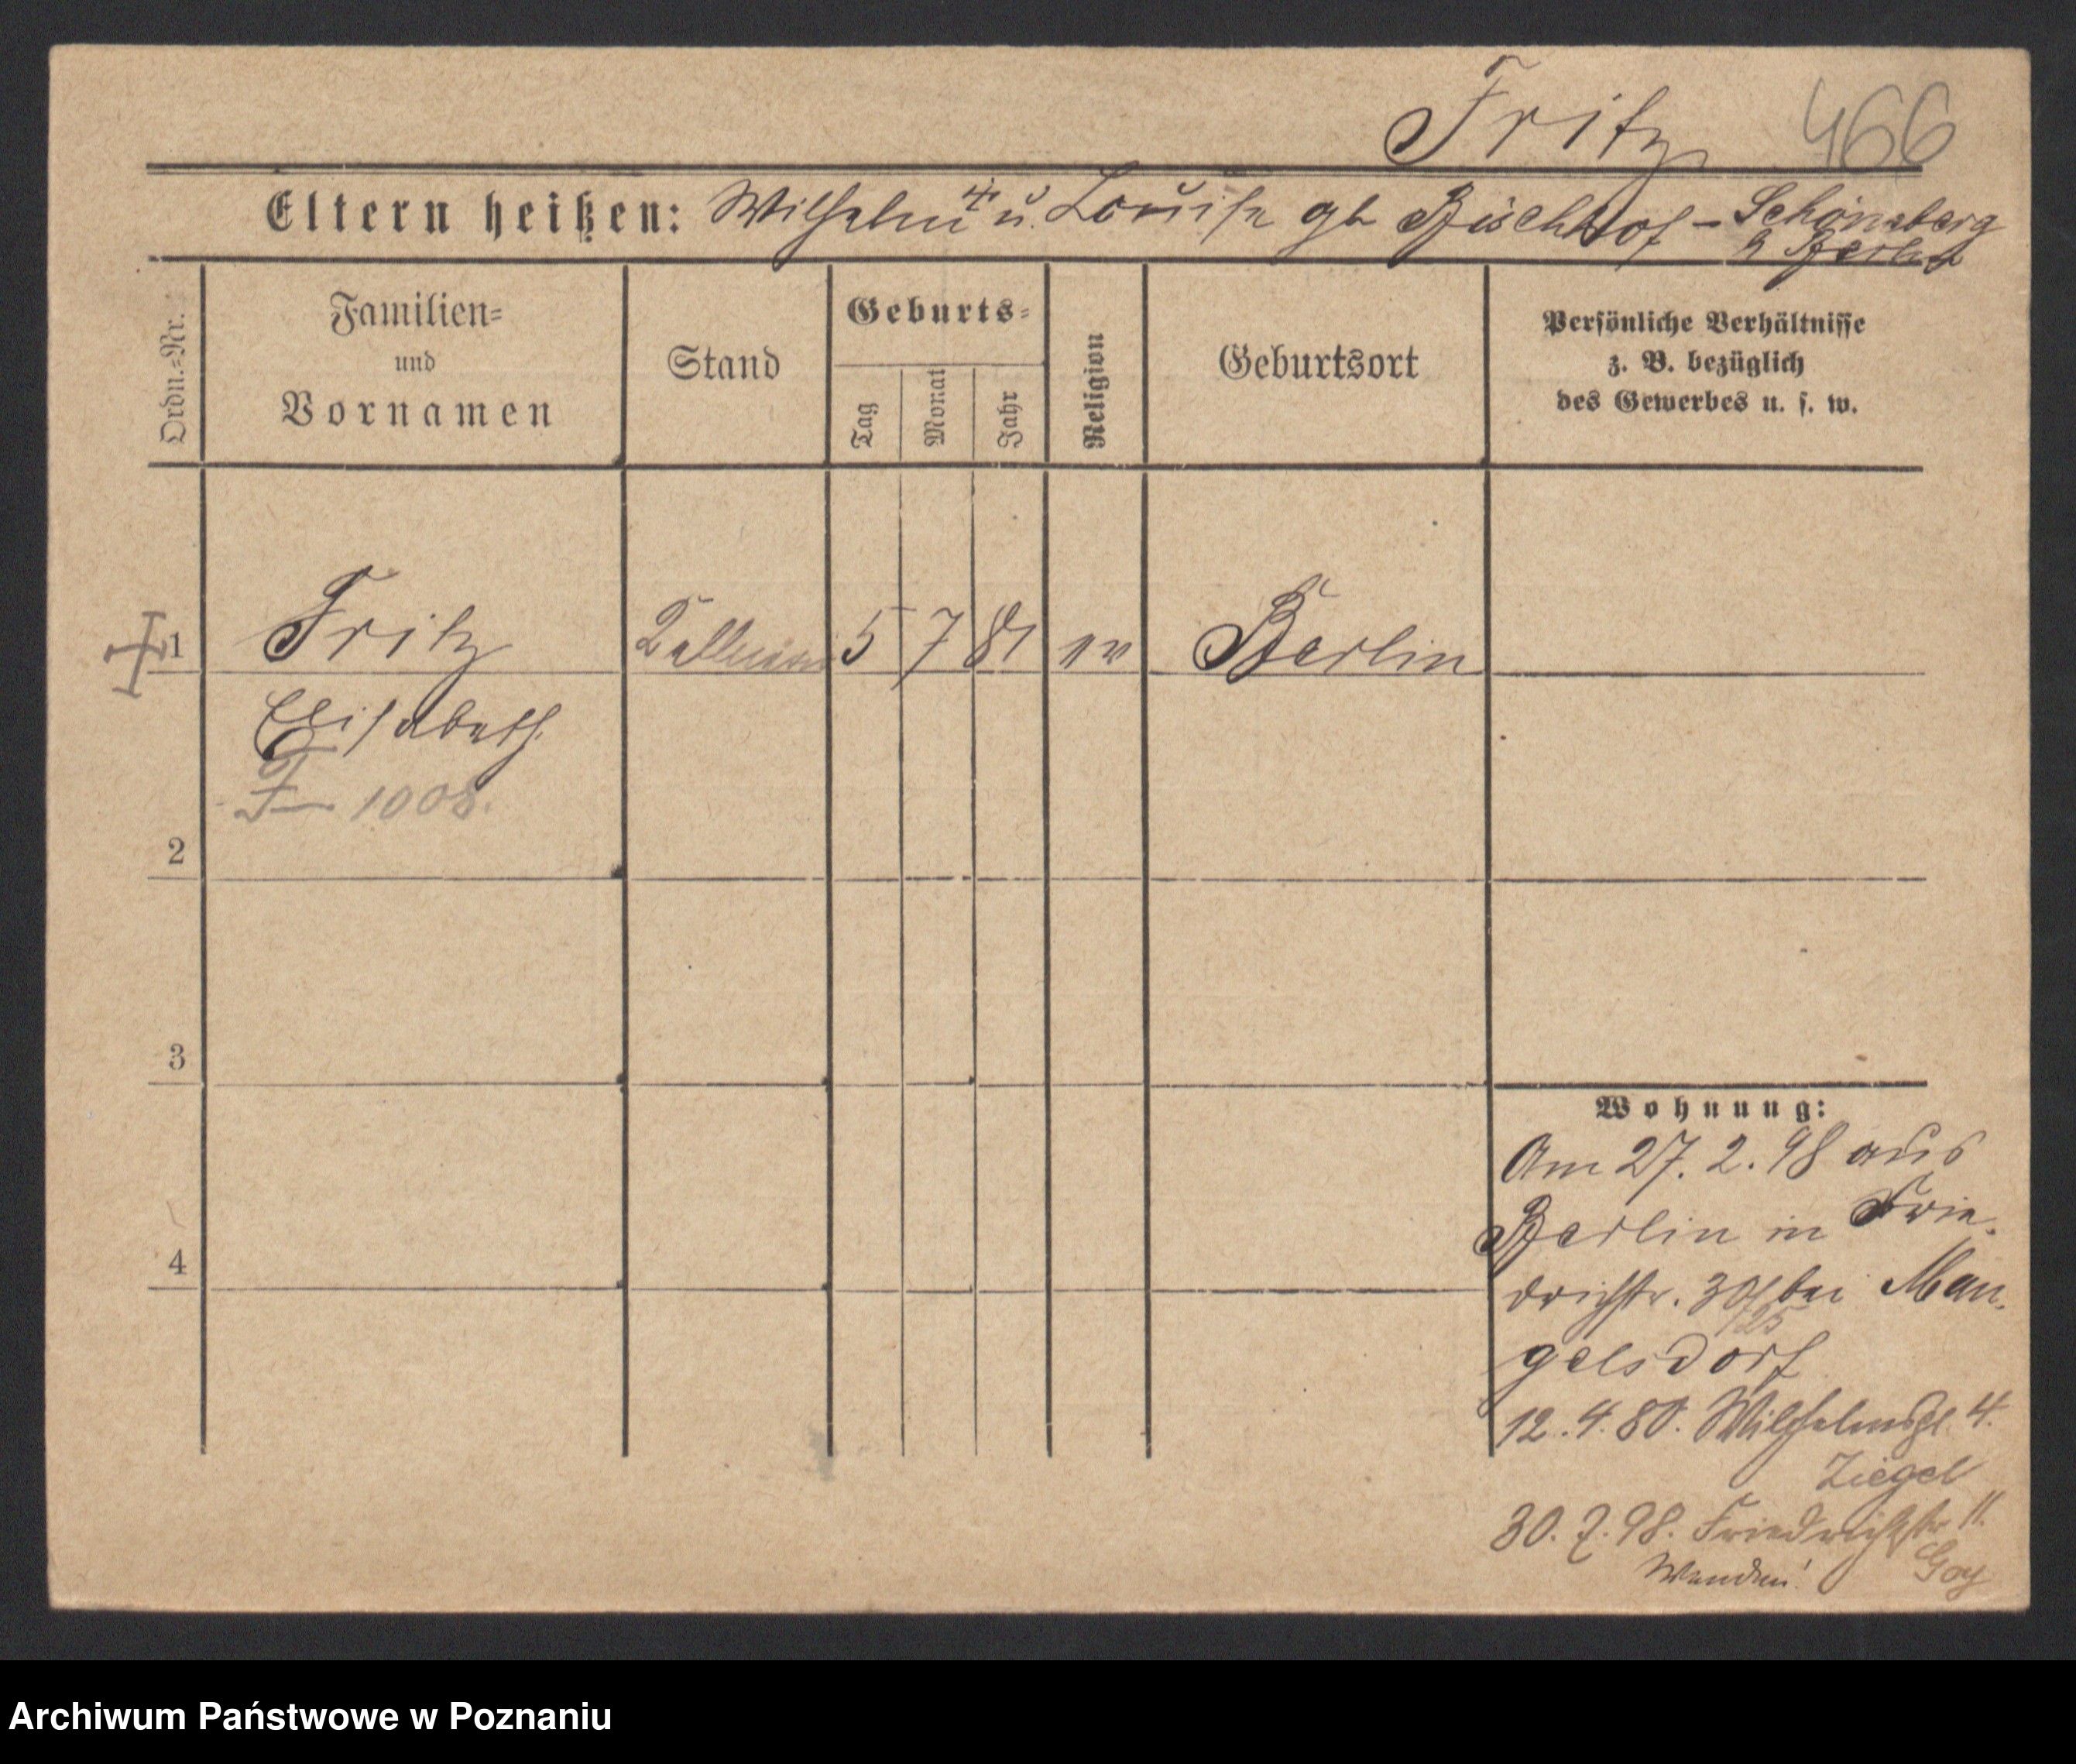 Fritz 466
Eltern heißen: Wilhelm u. Louise gb Bischhof - Schöneberg
b Berlin
Ordn.=Nr.
Familien=
und
Vornamen
Stand
Geburts=
Tag
Monat
Jahr
Religion
Geburtsort
Persönliche Verhältnisse
z. B. bezüglich
des Gewerbes u. s. w.
1 Fritz 5 7 81 ev Berlin
Elisabeth
F— 1008.
2
3
4
Wohnung:
Am 27. 2. 98 aus
Berlin in Frie-
drichstr. 30 bei Man-
25
gelsdorf
12. 4. Wilhelmspl. 4.
Ziegel
30. 98. Friedrichstr 11.
Goy
Wenden!
Archiwum Państwowe w Poznaniu